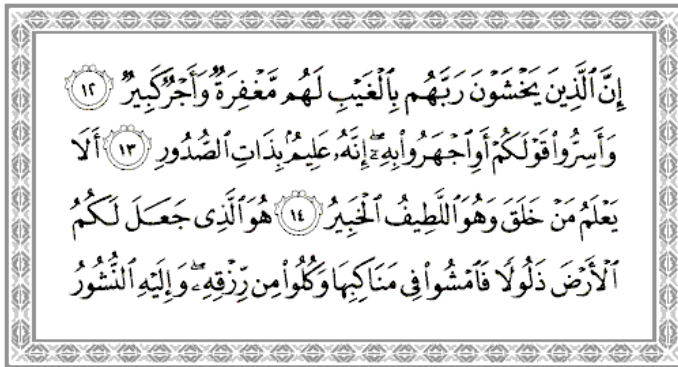 إِنَّ ٱلَّذِينَ يَخْشَوْنَ رَبَّهُم بِٱلْغَيْبِ لَهُم مَّغْفِرَةٌ وَأَجْرٌ كَبِيرٌ ١٢
وَأَسِرُّوا۟ قَوْلَكُمْ أَوِ ٱجْهَرُوا۟ بِهِۦٓ ۖ إِنَّهُۥ عَلِيمٌۢ بِذَاتِ ٱلصُّدُورِ ١٣ أَلَا
يَعْلَمُ مَنْ خَلَقَ وَهُوَ ٱللَّطِيفُ ٱلْخَبِيرُ ١٤ هُوَ ٱلَّذِى جَعَلَ لَكُمُ
ٱلْأَرْضَ ذَلُولًا فَٱمْشُوا۟ فِى مَنَاكِبِهَا وَكُلُوا۟ مِن رِّزْقِهِۦ ۖ وَإِلَيْهِ ٱلنُّشُورُ